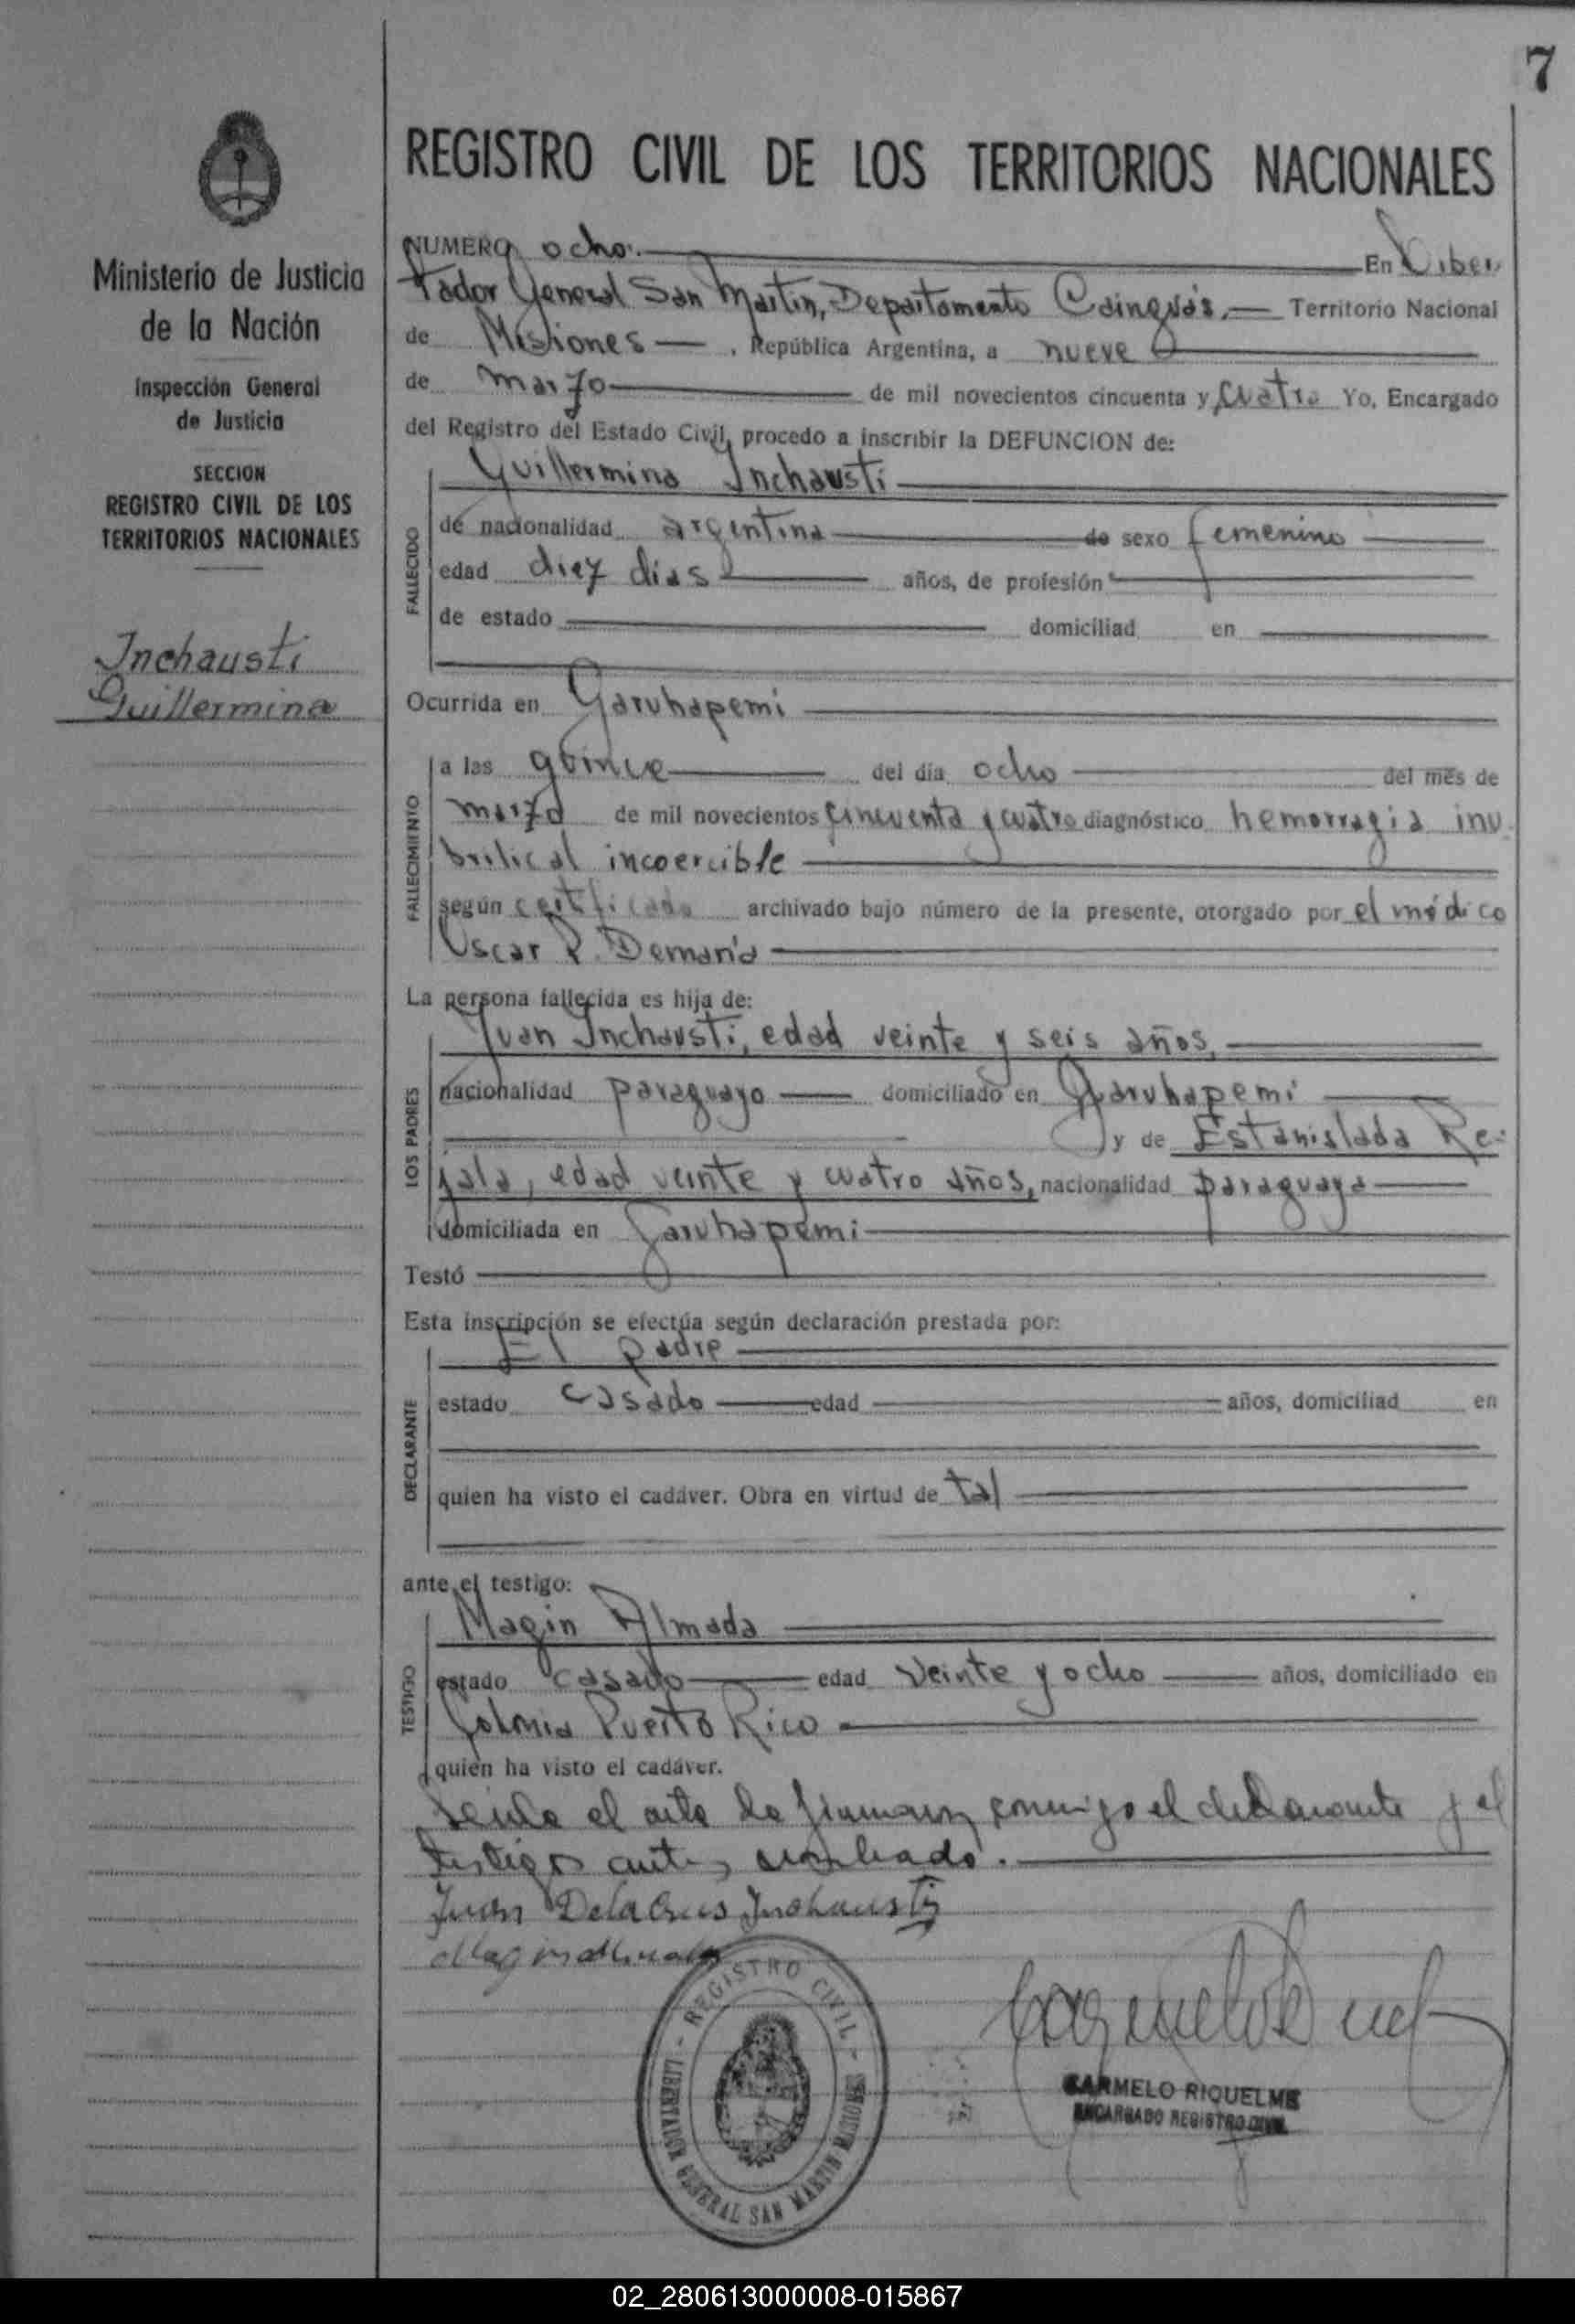 7
Ministerio de Justicia
de la Nación
Inspección General
de Justicia
SECCION
REGISTRO CIVIL DE LOS
TERRITORIOS NACIONALES
Inchausti
Guillermina
REGISTRO CIVIL DE LOS TERRITORIOS NACIONALES
NUMERO ocho. En Liber
tador General San Martin, Departamento Cainguás. Territorio Nacional
de Misiones , República Argentina, a nueve
de marzo de mil novecientos cincuenta y cuatro Yo, Encargado
del Registro del Estado Civil, procedo a inscribir la DEFUNCION de:
Guillermina Inchausti
FALLECIDO
de nacionalidad argentina de sexo femenino
edad diez dias años, de profesión
de estado domiciliad en
Ocurrida en Garuhapemi
FALLECIMIENTO
a las quince del día ocho del mes de
marzo de mil novecientos cincuenta y cuatro diagnóstico hemorragia inu
brilical incoercible
según certificado archivado bajo número de la presente, otorgado por el médico
Oscar R. Demaría
La persona fallecida es hija de:
Juan Inchausti, edad veinte y seis años,
LOS PADRES
nacionalidad paraguayo domiciliado en Garuhapemi
y de Estanislada Re-
jala, edad veinte y cuatro años, nacionalidad paraguaya
domiciliada en Garuhapemi
Testó
Esta inscripción se efectúa según declaración prestada por:
El padre
DECLARANTE
estado casado edad años, domiciliad en
quien ha visto el cadáver. Obra en virtud de tal
ante el testigo:
Magin Almada
TESTIGO
estado casado edad veinte y ocho años, domiciliado en
Colonia Puerto Rico
quien ha visto el cadáver.
Leida el acta la firmaron conmigo el declarante y el
testigo antes nombrado.
Juan Delacrus Inchausti
Magin Almada
REGISTRO CIVIL
LIBERTADOR GENERAL SAN MARTIN MISIONES
CARMELO RIQUELME
ENCARGADO REGISTRO CIVIL
02_280613000008-015867